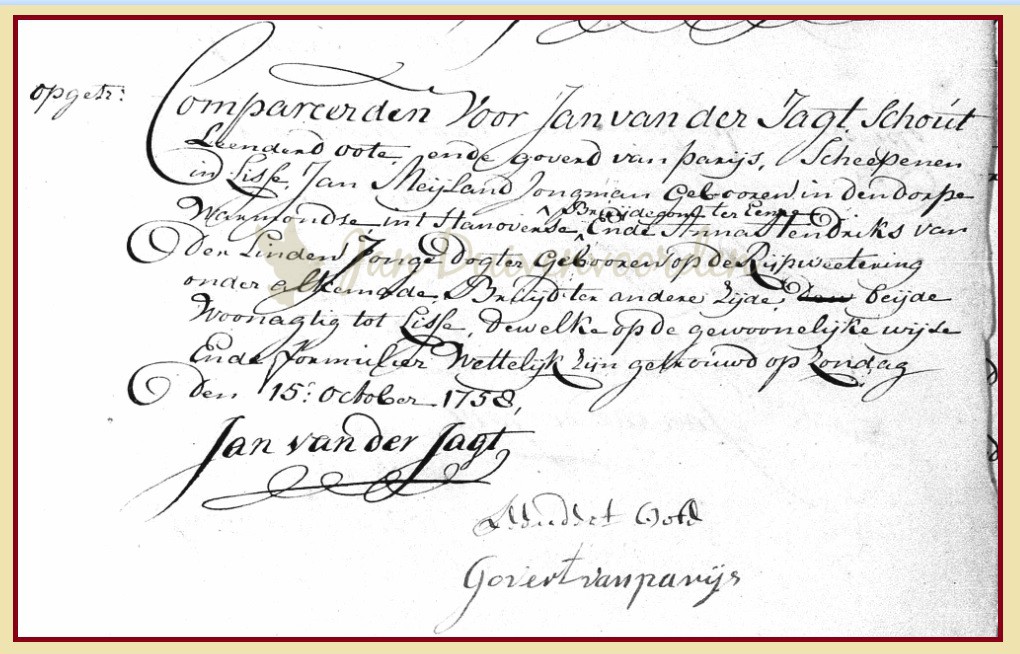 opgetr:
Compareerden Voor Jan van der Jagt. Schout
Leendend oote, ende goverd van parijs, Scheepenen
in Lisse, Jan Meijland Jongman Gebooren in den dorpe
Warmondse, int Hanoverse, Bruijdegom ter Eenre Ende Anna Hendriks van
Der Linden Jonge Dogter Gebooren op de Rijpweetering
onder alkemade, Bruijd ter andere Zijde, beijde
Woonagtig tot Lisse, Dewelke op de gewoonelijke wijse
Ende formulier Wettelijk Zijn getrouwd op Zondag
Den 15: October 1758,
Jan van der Jagt
Oote
Govert van parijs
Jan Duivenvoorden